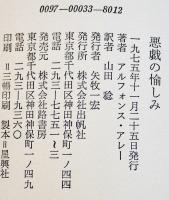 0097-00033-8012
悪戯の愉しみ
一九七五年十一月二十五日発行
著者 アルフォンス・アレー
訳者 山田 稔
発行者 矢牧一宏
発行所 株式会社出帆社
東京都千代田区神田神保町一ノ四四
電話 二九三―七七五一~三
発売元 株式会社路書房
東京都千代田区神田神保町一ノ四九
電話 二九三―九三六〇
印刷＝三幡印刷 製本＝星興社